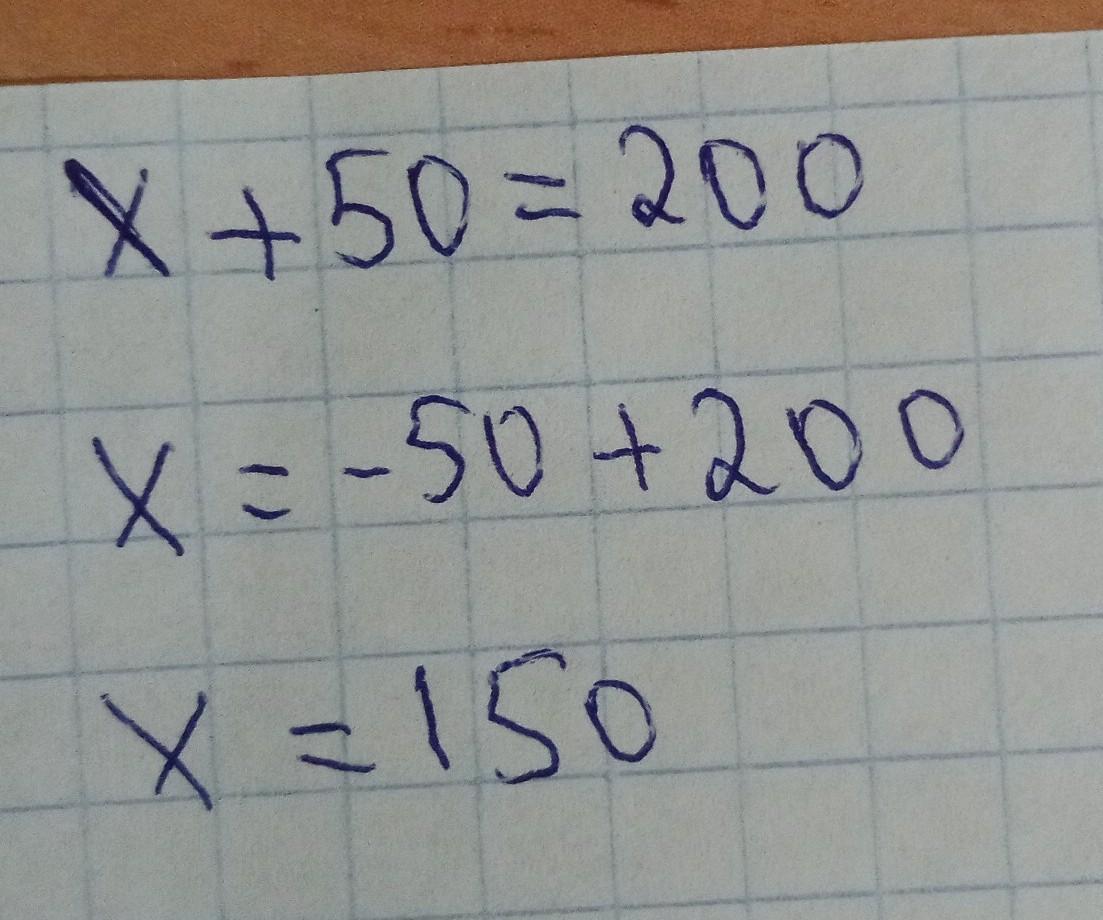 x + 50 = 200
x = -50 + 200
x = 150